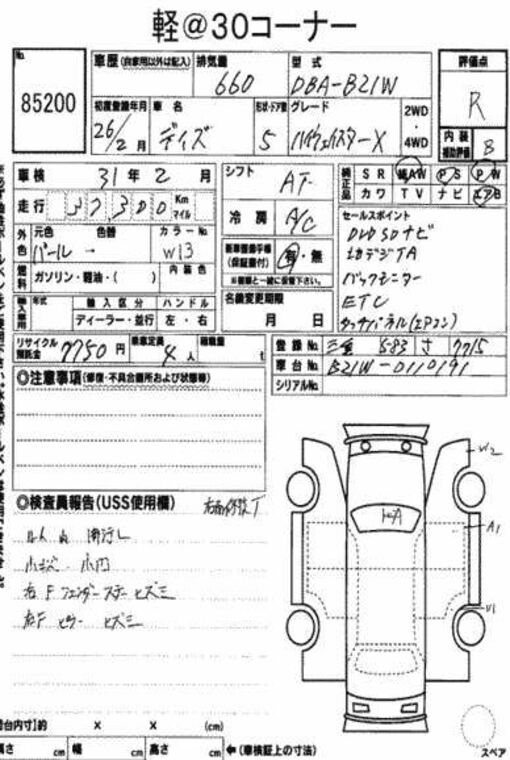 軽@30コーナー
No. 85200
車歴 (自家用以外は記入)
排気量 660
型式 DBA-B21W
評価点 R
初度登録年月 26/2月
車名 デイズ
形状・ドア数 5
グレード ハイウェイスターX
2WD・4WD
内装補助評価 B
車検 31年2月
シフト AT
純正品 SR AW PS PW
カワ TV ナビ エアB
走行 37,300 Km マイル
冷房 A/C
セールスポイント
DVD SDナビ
地デジTA
バックモニター
ETC
タッチパネル(エアコン)
外色 元色 パール 色替 カラーNo. W13
新車整備手帳(保証書付) 有・無
※書類と一緒に保管下さい。
燃料 ガソリン・軽油・( ) 内装色
名義変更期限 月 日
輸入車用 年式 輸入区分 ハンドル
ディーラー・並行 左・右
リサイクル預託金 7750円
乗車定員 4人
積載量 t
登録No. 三重 583 さ 7715
車台No. B21W-0110191
シリアルNo.
◎注意事項(修復・不具合箇所および状態等)
◎検査員報告(USS使用欄) 右面修段丁
小キズ 小凹
右Fフェンダーステーヒズミ
右F ピラー ヒズミ
W2
A1
(荷台内寸)約 × × (cm)
長さ cm 幅 cm 高さ cm ←(車検証上の寸法)
スペア